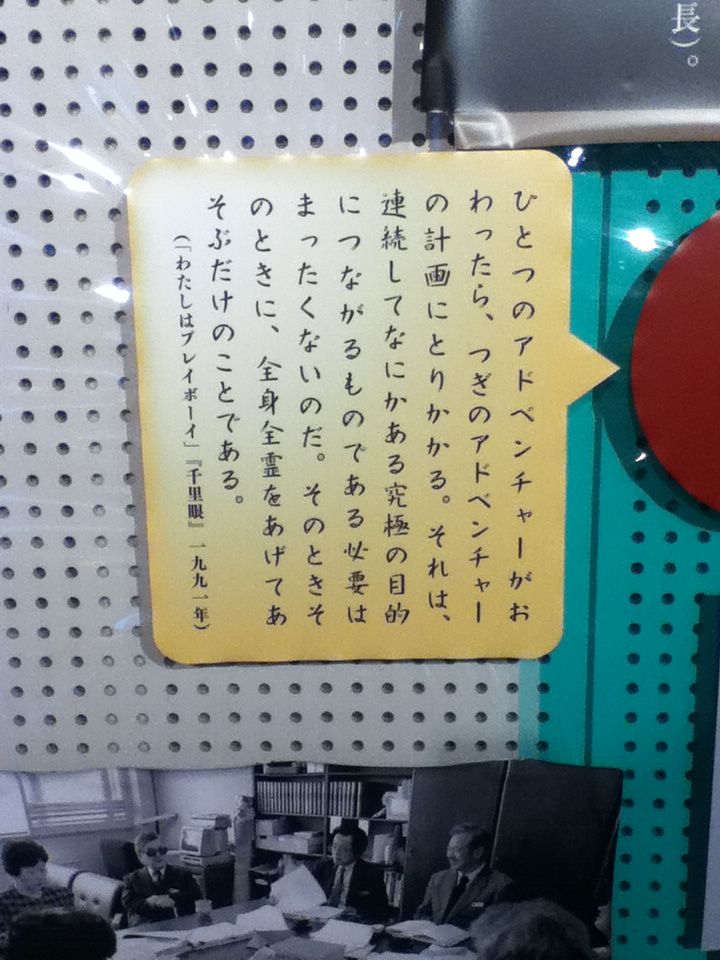 長）。
ひとつのアドベンチャーがお
わったら、つぎのアドベンチャー
の計画にとりかかる。それは、
連続してなにかある究極の目的
につながるものである必要は
まったくないのだ。そのときそ
のときに、全身全霊をあげてあ
そぶだけのことである。
（「わたしはプレイボーイ」『千里眼』一九九一年）